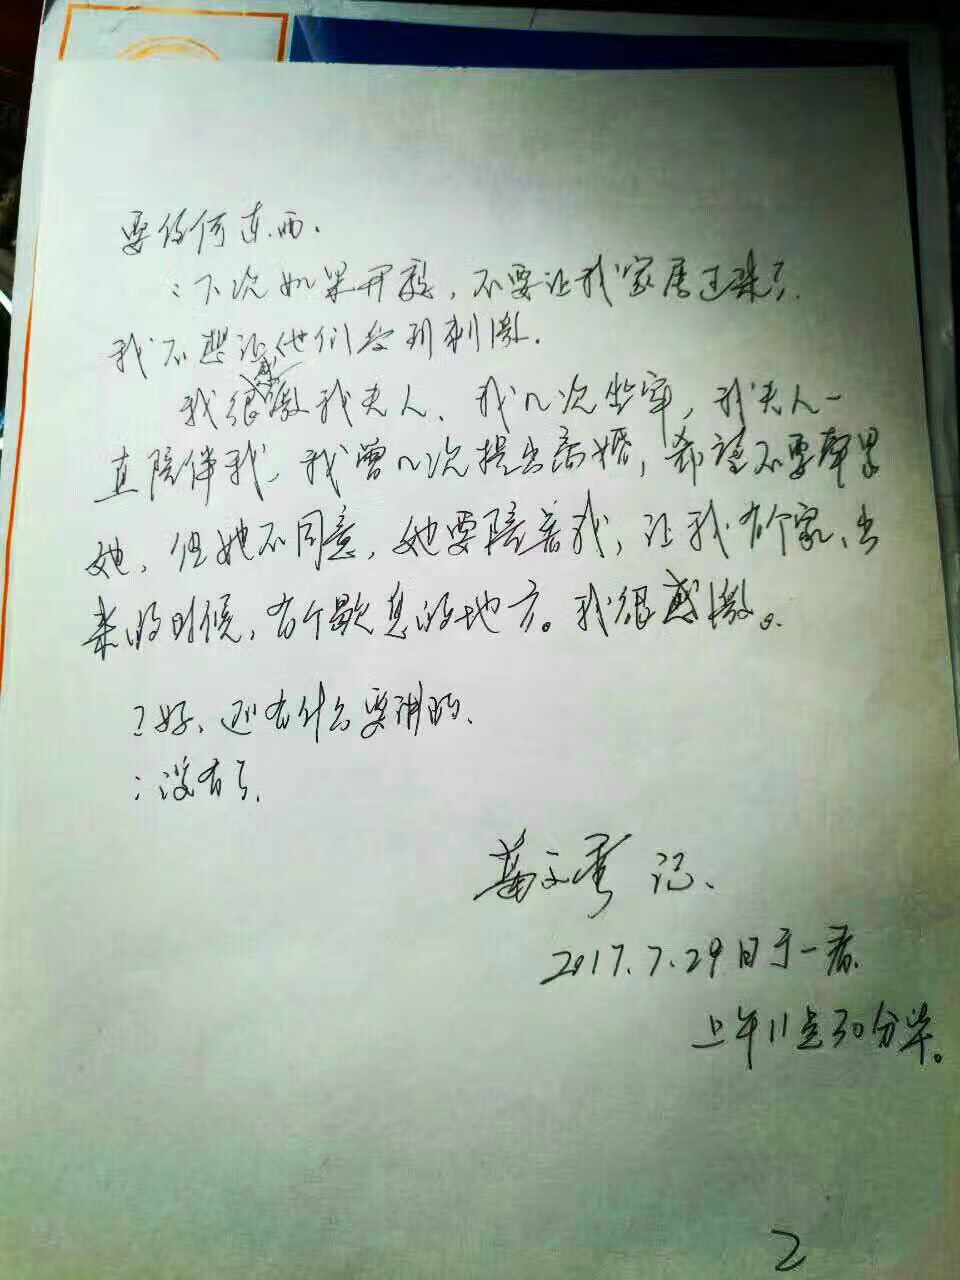 要任何东西.
:下次如果开庭,不要让我家属过来了.
我不想让他们受到刺激.
我很感激我夫人、我几次坐牢,我夫人一
直陪伴我、我曾几次提出离婚,希望不要牵累
她、但她不同意,她要陪着我,让我有个家、出
来的时候,有个歇息的地方。我很感激。
?好、还有什么要讲的、
:没有了.
记、
2017.7.29日于一看.
上午11点30分毕。
2